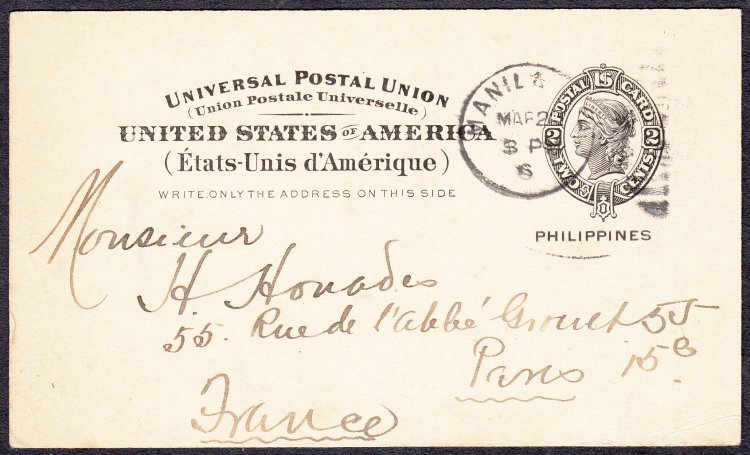 UNIVERSAL POSTAL UNION
(Union Postale Universelle)
UNITED STATES OF AMERICA
(États-Unis d'Amérique)
WRITE ONLY THE ADDRESS ON THIS SIDE
MANILA
MAR 2
3 P
6
U.S. POSTAL CARD
2 2
TWO CENTS
PHILIPPINES
Monsieur
H. Honades
55. Rue de l'abbé Grouet 55
Paris 15e
France